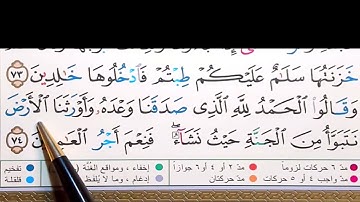 خَزَنَتُهَا سَلَٰمٌ عَلَيْكُمْ طِبْتُمْ فَٱدْخُلُوهَا خَٰلِدِينَ ٧٣
وَقَالُوا۟ ٱلْحَمْدُ لِلَّهِ ٱلَّذِى صَدَقَنَا وَعْدَهُۥ وَأَوْرَثَنَا ٱلْأَرْضَ
نَتَبَوَّأُ مِنَ ٱلْجَنَّةِ حَيْثُ نَشَآءُ ۖ فَنِعْمَ أَجْرُ ٱلْعَٰمِلِينَ ٧٤
مدّ ٦ حركات لزوماً مدّ ٢ أو ٤ أو ٦ جوازاً إخفاء، ومواقع الغُنَّة تفخيم
مدّ واجب ٤ أو ٥ حركات مدّ حركتان إدغام، وما لا يُلفَظ قلقلة